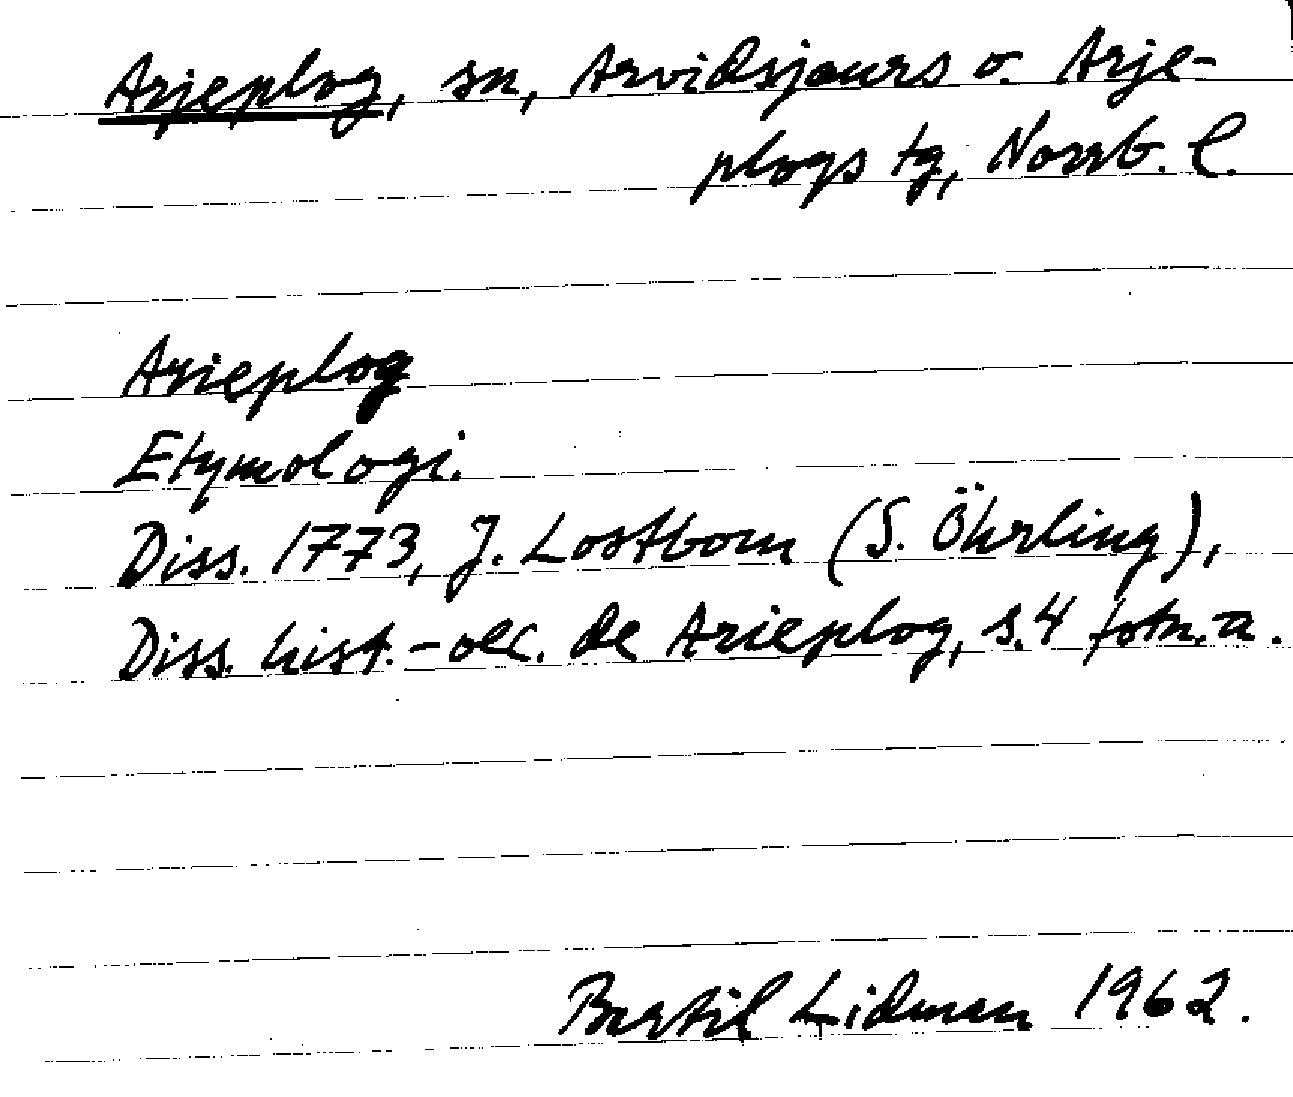 Arjeplog, sn, Arvidsjaurs o. Arje-
plogs tg, Norrb. l.
Arieplog
Etymologi.
Diss. 1773, J. Lostbom (S. Öhrling),
Diss. hist.-oec. de Arieplog, s. 4 fotn. a.
Bertil Lidman 1962.